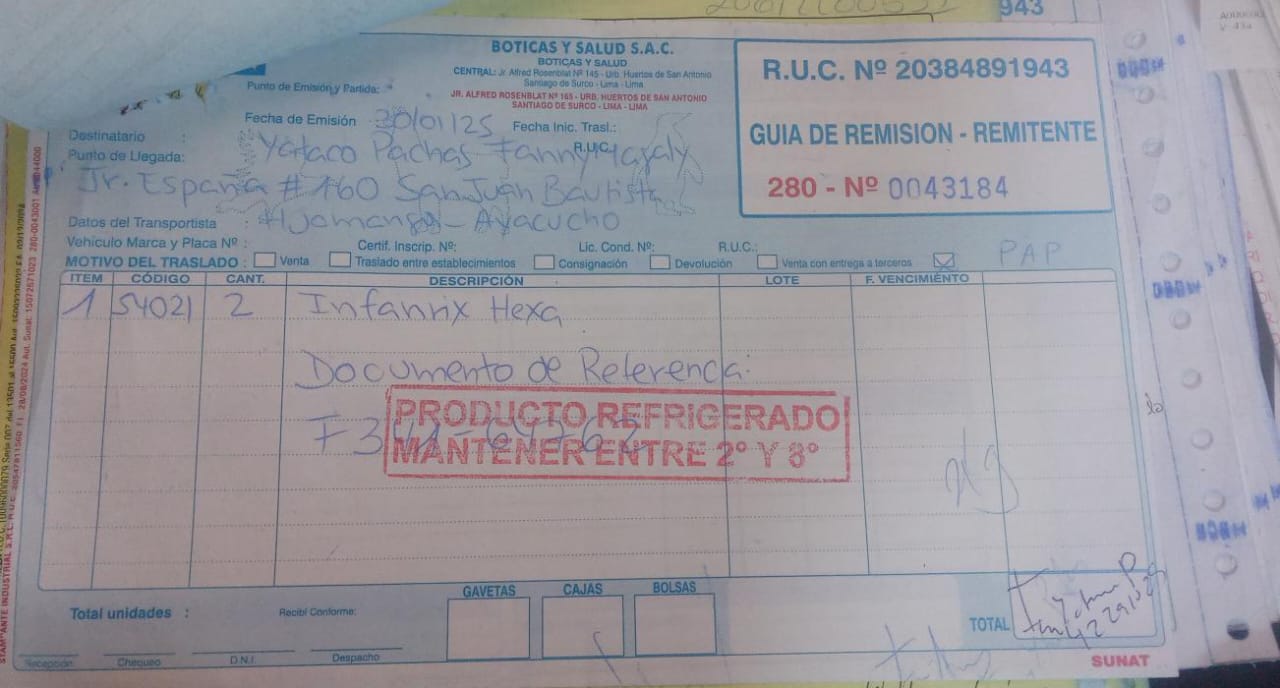 943
BOTICAS Y SALUD S.A.C.
BOTICAS Y SALUD
CENTRAL: Jr. Alfred Rosenblat Nº 145 - Urb. Huertos de San Antonio
Santiago de Surco - Lima - Lima
Punto de Emisión y Partida:
JR. ALFRED ROSENBLAT Nº 165 - URB. HUERTOS DE SAN ANTONIO
SANTIAGO DE SURCO - LIMA - LIMA
R.U.C. Nº 20384891943
GUIA DE REMISION - REMITENTE
280 - Nº 0043184
Fecha de Emisión 30/01/25 Fecha Inic. Trasl.:
Destinatario : Yataco Pachas Fanny Magaly R.U.C.
Punto de Llegada: Jr. España # 160 San Juan Bautista
Datos del Transportista Huamanga - Ayacucho
Vehículo Marca y Placa Nº : Certif. Inscrip. Nº: Lic. Cond. Nº: R.U.C.:
MOTIVO DEL TRASLADO: Venta Traslado entre establecimientos Consignación Devolución Venta con entrega a terceros PAP
ITEM CÓDIGO CANT. DESCRIPCIÓN LOTE F. VENCIMIENTO
1 54021 2 Infanrix Hexa
Documento de Referencia:
PRODUCTO REFRIGERADO
MANTENER ENTRE 2º Y 8º
GAVETAS CAJAS BOLSAS
Total unidades : Recibí Conforme:
TOTAL
Recepción Chequeo D.N.I. Despacho
SUNAT